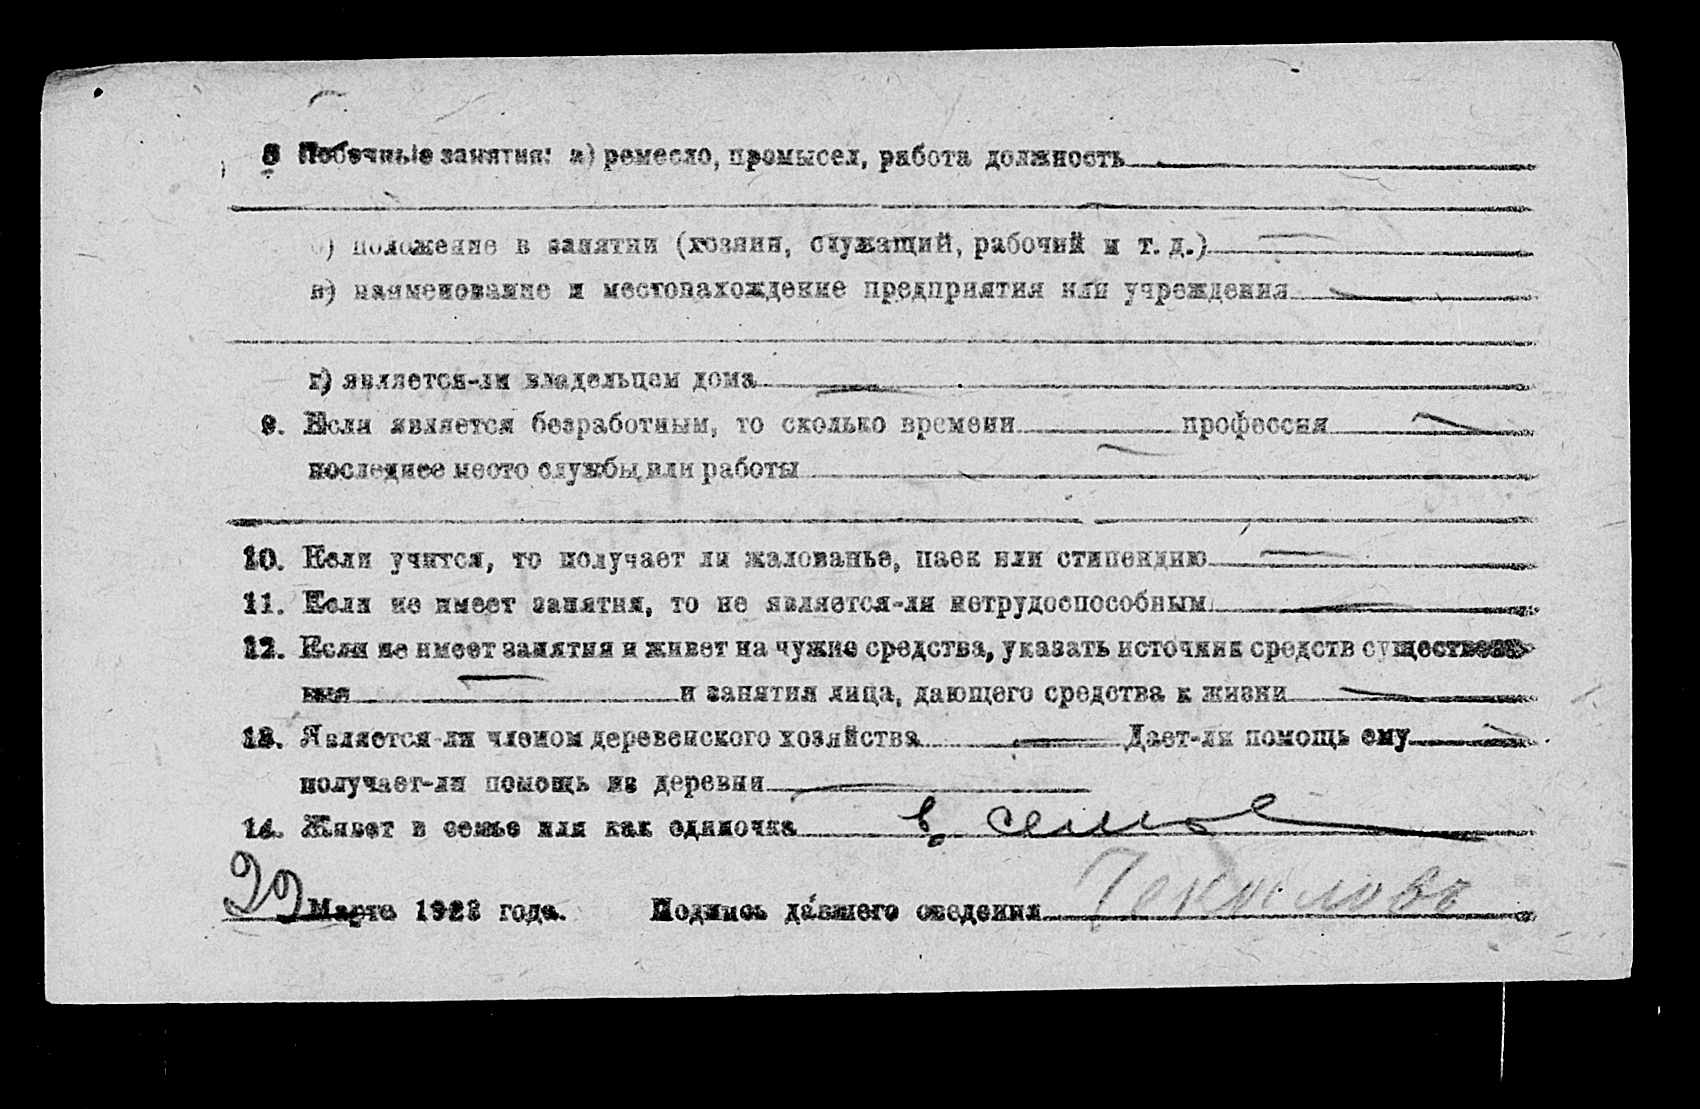 8 Побочные занятия: а) ремесло, промысел, работа должность
б) положение в занятии (хозяин, служащий, рабочий и т. д.)
в) наименование и местонахождение предприятия или учреждения
г) является-ли владельцем дома
9. Если является безработным, то сколько времени профессия
последнее место службы, или работы
10. Если учится, то получает ли жалованье, паек или стипендию
11. Если не имеет занятия, то не является-ли нетрудоспособным
12. Если не имеет занятия и живет на чужие средства, указать источник средств существова-
ния и занятия лица, дающего средства к жизни
13. Является-ли членом деревенского хозяйства Дает-ли помощь ему
получает-ли помощь из деревни
14. Живет в семье или как одиночка в семье
29 Марта 1923 года. Подпись давшего сведения